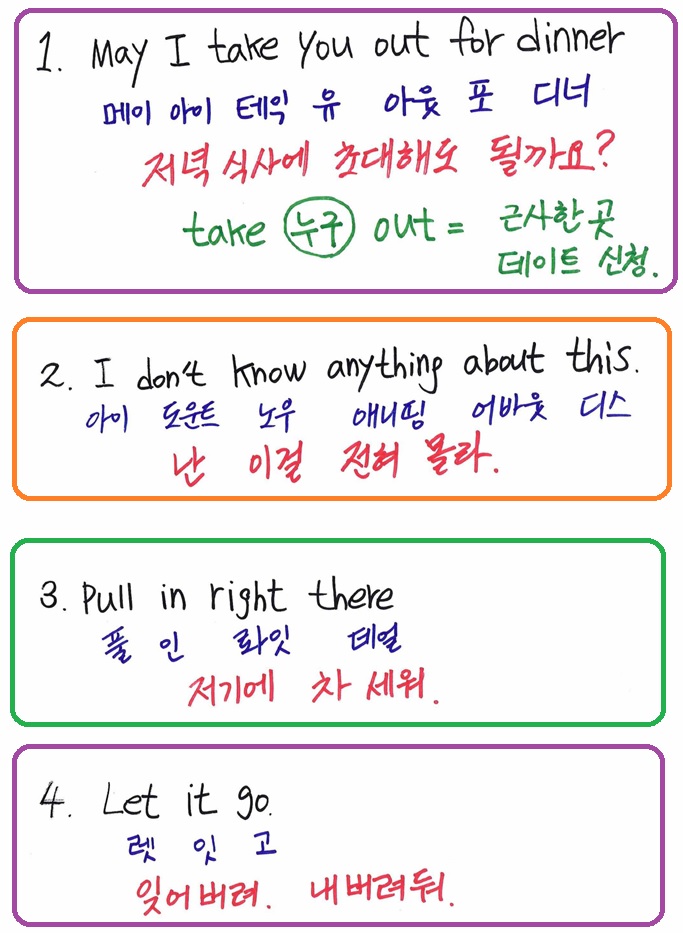 1. May I take you out for dinner
메이 아이 테잌 유 아웃 포 디너
저녁 식사에 초대해도 될까요?
take 누구 out = 근사한 곳
데이트 신청.
2. I don't know anything about this.
아이 도운트 노우 애니띵 어바웃 디스
난 이걸 전혀 몰라.
3. Pull in right there
풀 인 롸잇 데얼
저기에 차 세워.
4. Let it go.
렛 잇 고
잊어버려. 내버려둬.